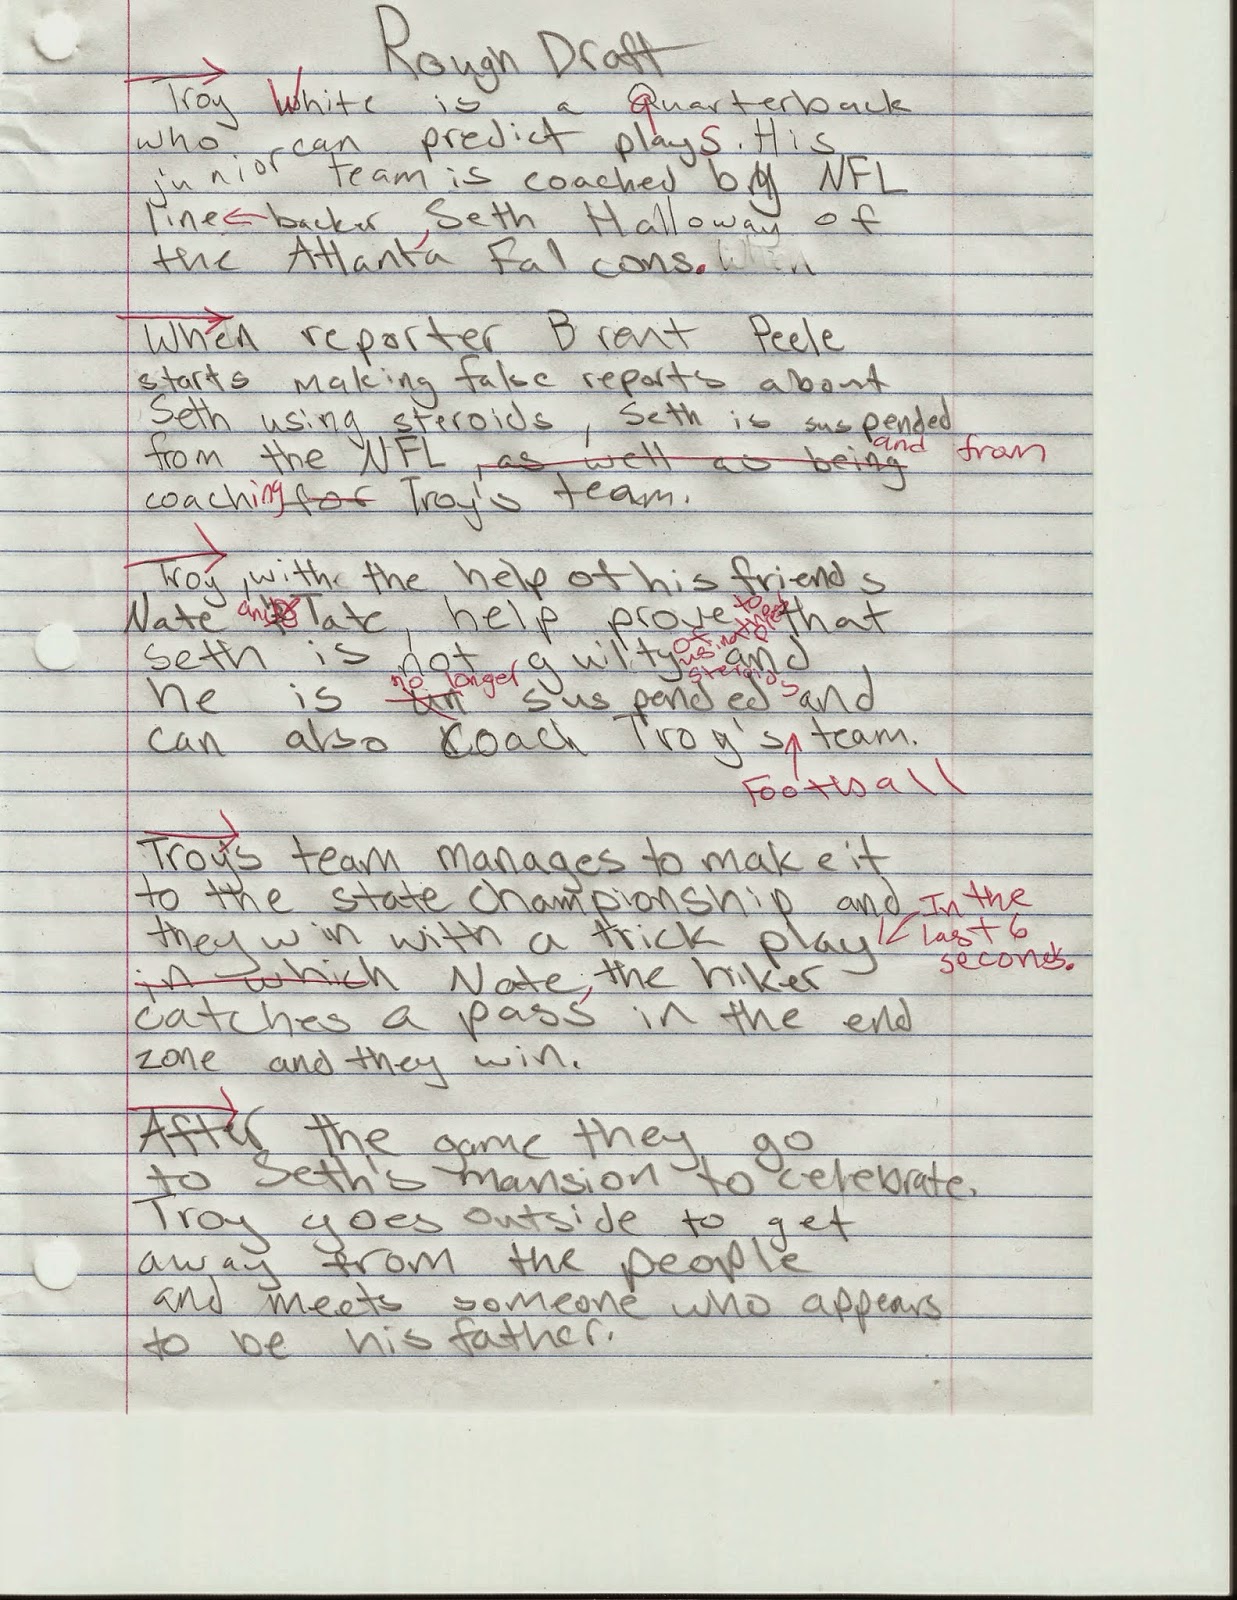 Rough Draft
Troy White is a Quarterback
who can predict plays. His
junior team is coached by NFL
line backer, Seth Halloway of
the Atlanta Falcons. When
When reporter Brent Peele
starts making false reports about
Seth using steroids, Seth is suspended
from the NFL, as well as being and from
coaching for Troy's team.
Troy, with the help of his friends
Nate and Tate, help prove to that
seth is not guilty of using steroids and
he is un no longer suspended and
can also coach Troy's team.
Football
Troy's team manages to make it
to the state championship and In the
they win with a trick play last 6
seconds.
in which Nate, the hiker
catches a pass in the end
zone and they win.
After the game they go
to Seth's mansion to celebrate.
Troy goes outside to get
away from the people
and meets someone who appears
to be his father.